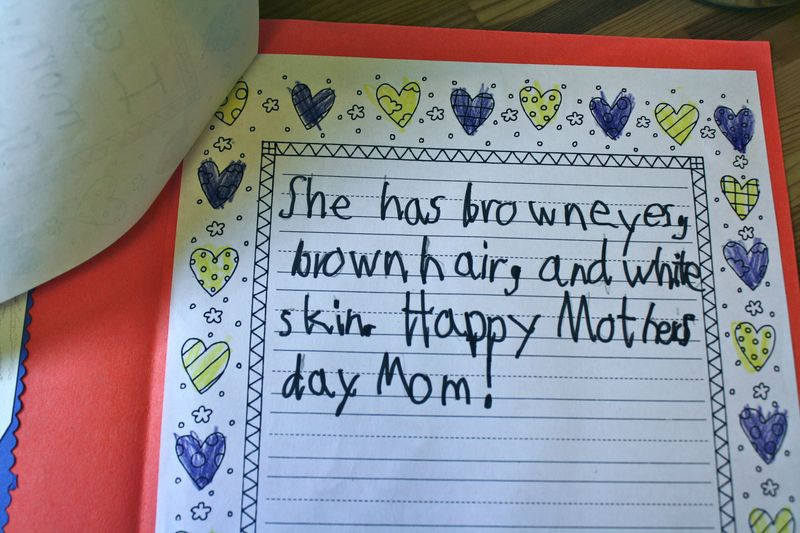 She has brown eyes,
brown hair, and white
skin. Happy Mothers
day Mom!